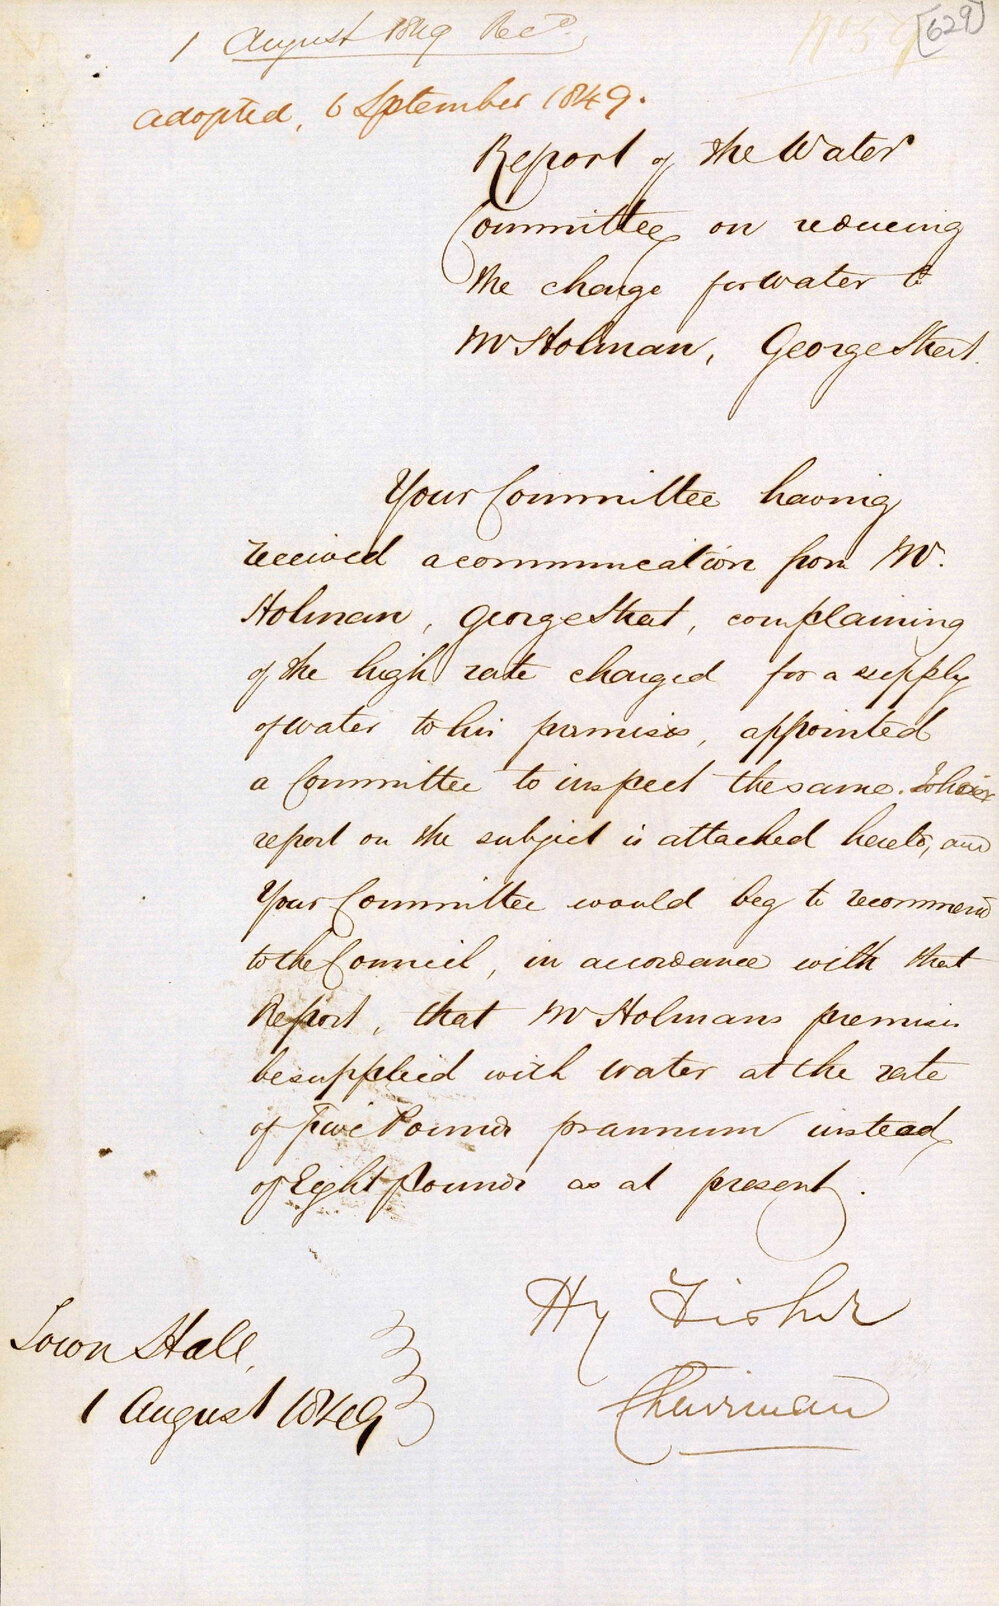 1 August 1849 Recd.
[629]
No 59
adopted, 6 September 1849.
Report of the Water
Committee on reducing
the charge for water to
Mr Holman, George Street.
Your Committee having
received a communication from Mr.
Holman, George Street, complaining
of the high rate charged for a supply
of water to his premises, appointed
a Committee to inspect the same. Whose
report on the subject is attached hereto, and
Your Committee would beg to recommend
to the Council, in accordance with that
Report, that Mr Holmans premises
be supplied with water at the rate
of Five Pounds pr annum instead
of Eight Pounds as at present.
Hy Fisher
Chairman
Town Hall,
1 August 1849